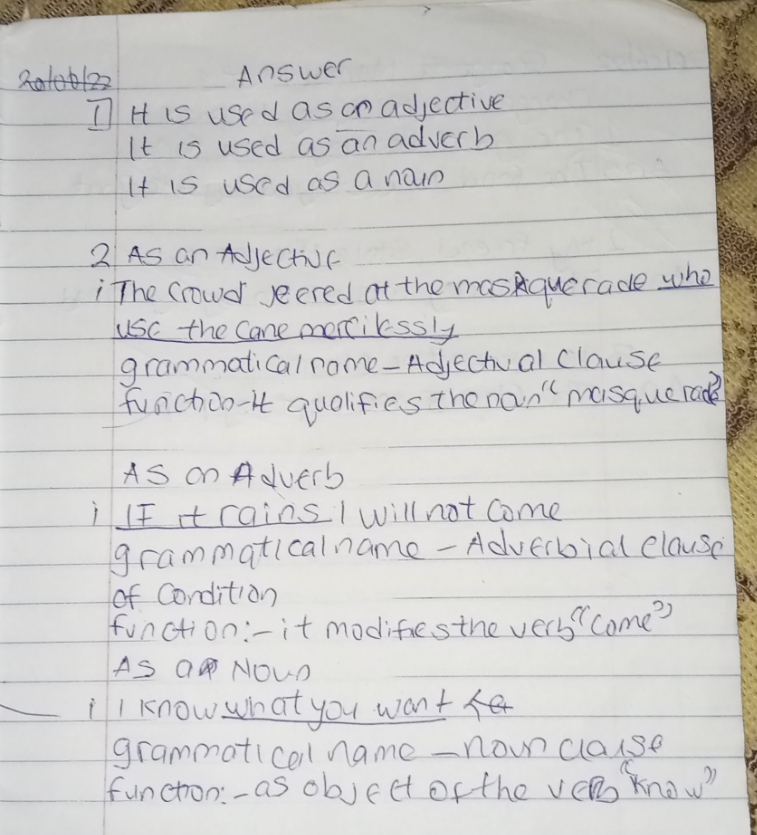 20/06/22 Answer
1 It is used as an adjective
It is used as an adverb
It is used as a noun
2 As an Adjective
i The crowd jeered at the masquerade who
use the cane mercilessly
grammatical name - Adjectival Clause
function - it qualifies the noun "masquerade"
As an Adverb
i If it rains I will not come
grammatical name - Adverbial clause
of Condition
function:- it modifies the verb "come"
As a Noun
i I know what you want
grammatical name - noun clause
function:- as object of the verb "know"